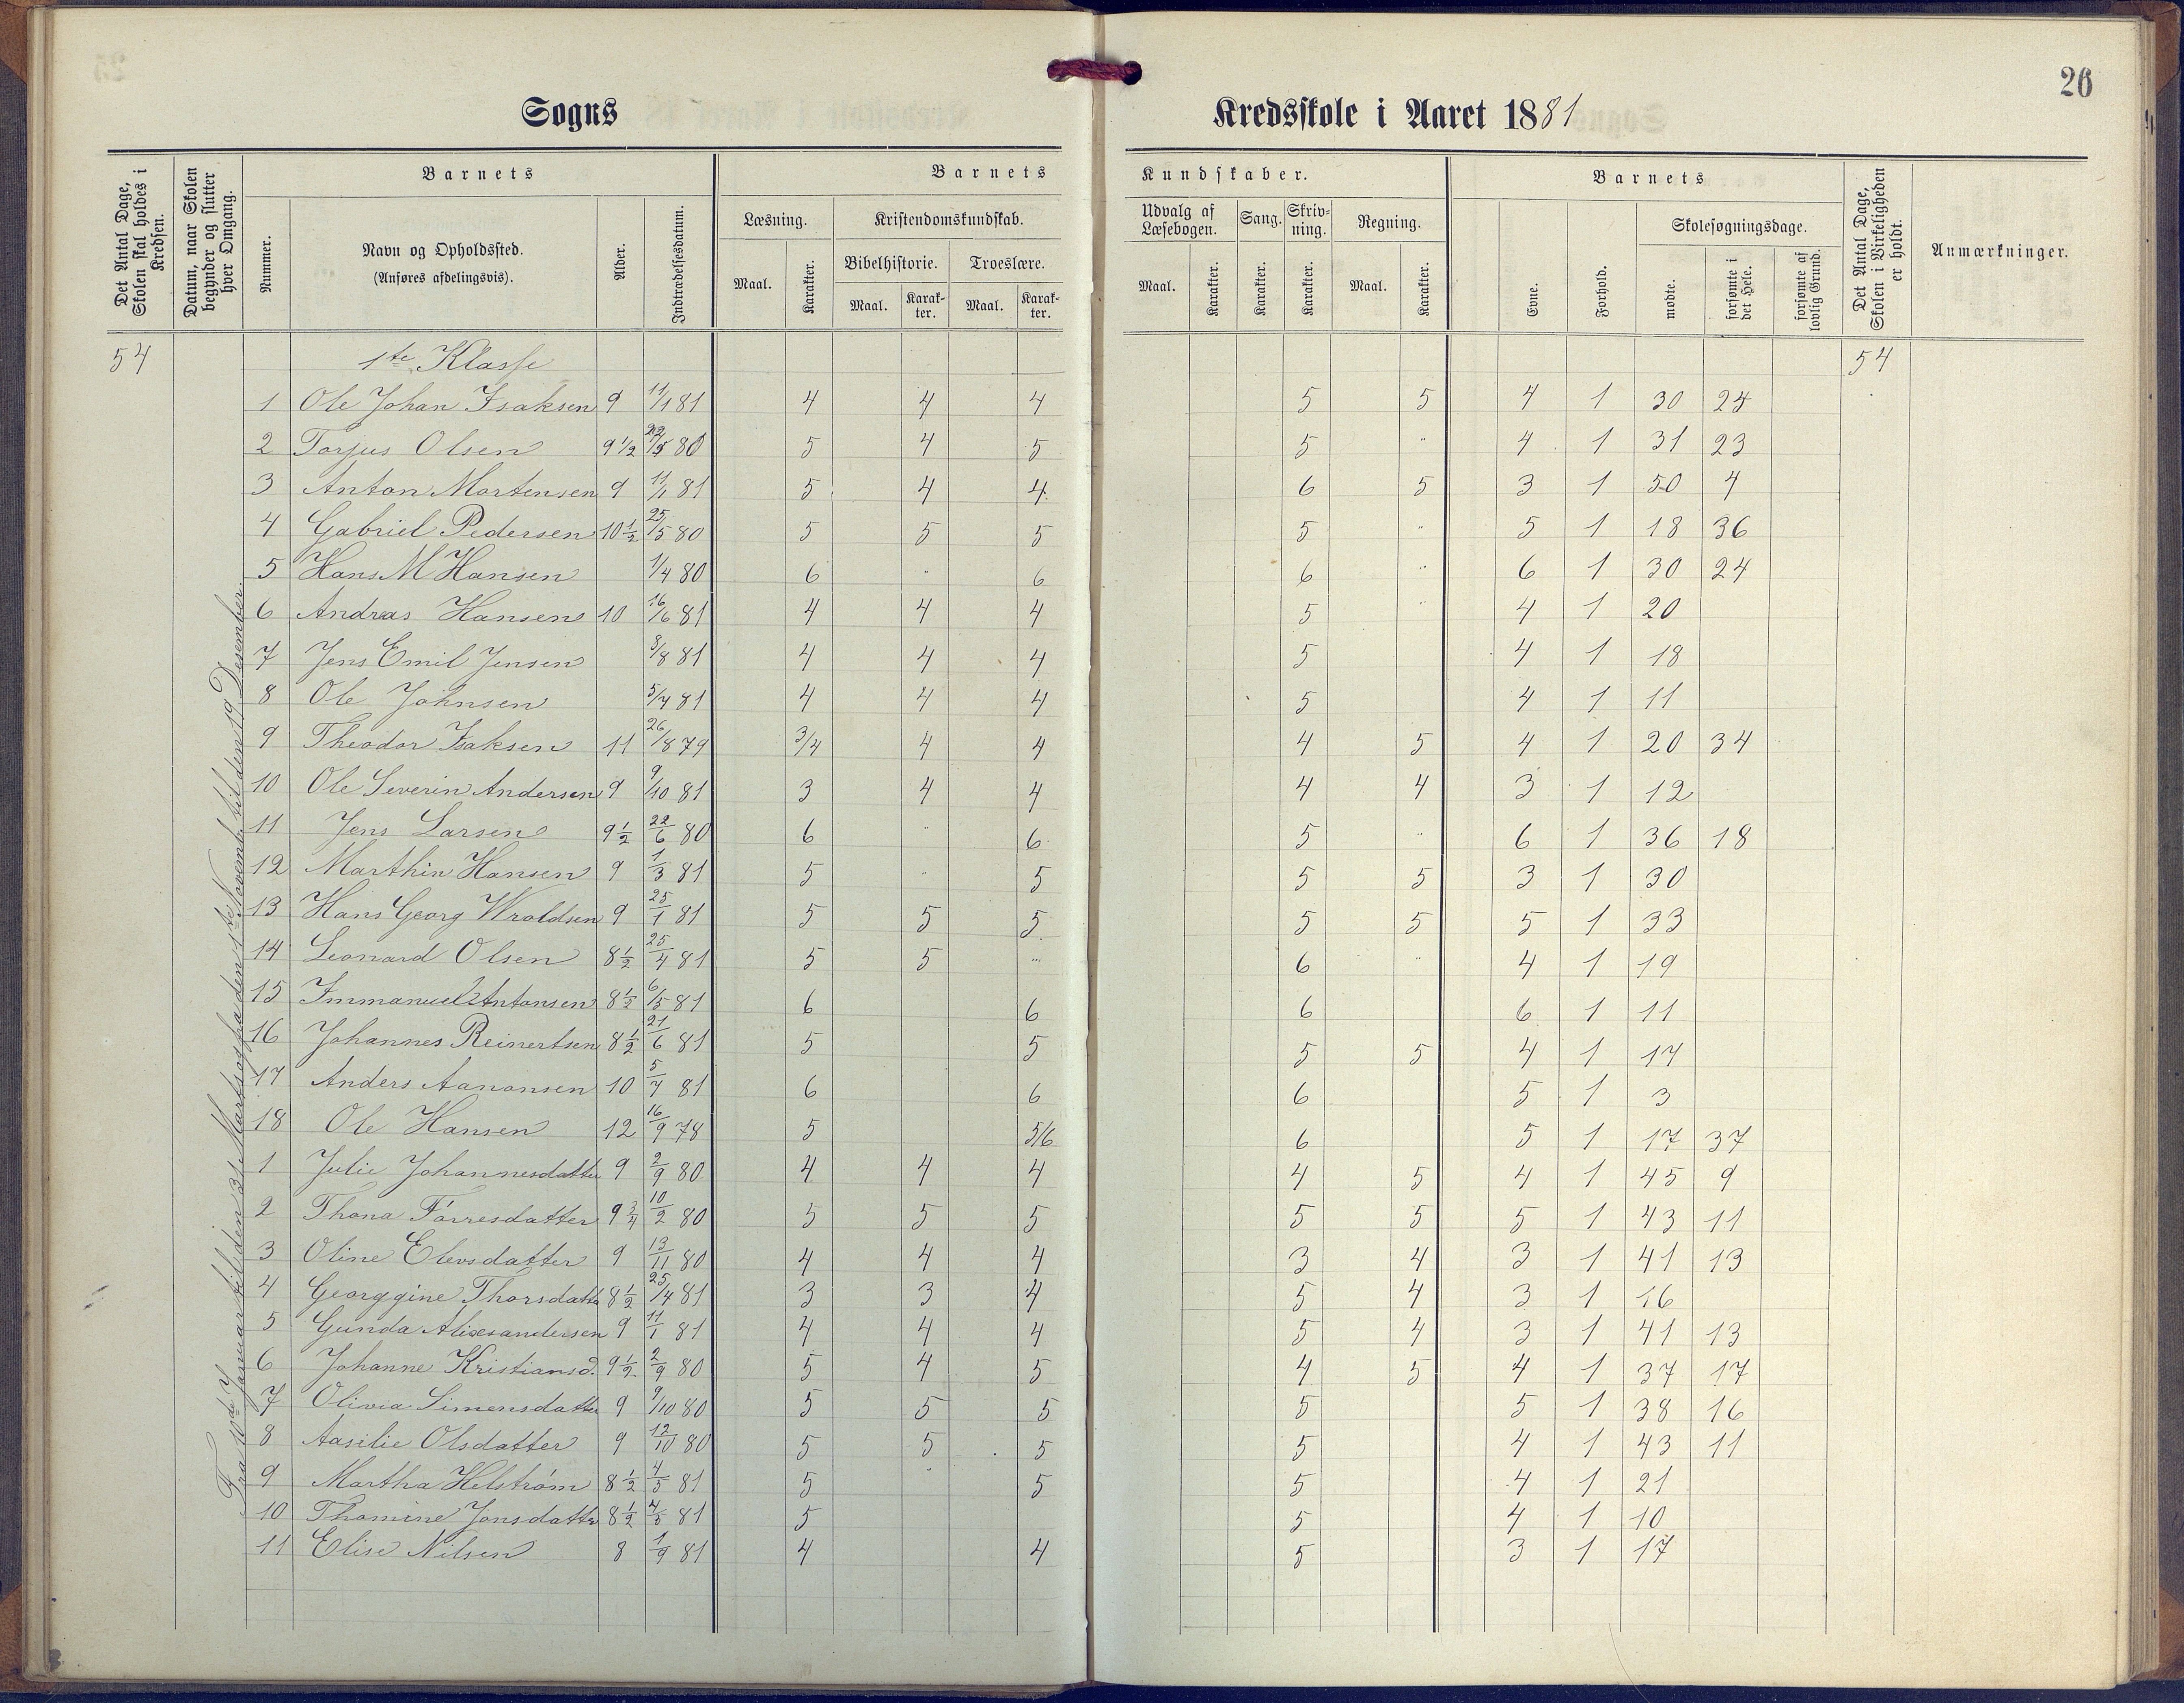 26
Sogns Kredsskole i Aaret 1881
Det Antal Dage, Skolen skal holdes i Kredsen.
Datum, naar Skolen begynder og slutter hver Omgang.
Barnets
Nummer.
Navn og Opholdssted.
(Anføres afdelingsvis).
Alder.
Indtrædelsesdatum.
Barnets Kundskaber.
Læsning.
Maal. Karakter.
Kristendomskundskab.
Bibelhistorie. Troeslære.
Maal. Karakter. Maal. Karakter.
Udvalg af Læsebogen.
Maal. Karakter.
Sang.
Karakter.
Skrivning.
Karakter.
Regning.
Maal. Karakter.
Barnets
Evne.
Forhold.
Skolesøgningsdage.
mødte.
forsømte i det Hele.
forsømte af lovlig Grund.
Det Antal Dage, Skolen i Virkeligheden er holdt.
Anmærkninger.
54 1ste Klasse 54
Fra 10de Januar til den 31 Marts og fra den 1ste Novemb. til den 19 Desember
1 Ole Johan Isaksen 9 11/1 81 4 4 4 5 5 4 1 30 24
2 Torjus Olsen 9 1/2 22/5 80 5 4 5 5 " 4 1 31 23
3 Anton Mortensen 9 11/1 81 5 4 4 6 5 3 1 50 4
4 Gabriel Pedersen 10 1/2 25/5 80 5 5 5 5 " 5 1 18 36
5 Hans M Hansen 1/4 80 6 " 6 6 " 6 1 30 24
6 Andreas Hansen 10 16/6 81 4 4 4 5 " 4 1 20
7 Jens Emil Jensen 8/8 81 4 4 4 5 4 1 18
8 Ole Johnsen 5/7 81 4 4 4 5 4 1 11
9 Theodor Isaksen 11 26/8 79 3/4 4 4 4 5 4 1 20 34
10 Ole Severin Andersen 9 9/10 81 3 4 4 4 4 3 1 12
11 Jens Larsen 9 1/2 22/6 80 6 " 6 5 " 6 1 36 18
12 Marthin Hansen 9 1/3 81 5 " 5 5 5 3 1 30
13 Hans Georg Wroldsen 9 25/1 81 5 5 5 5 5 5 1 33
14 Leonard Olsen 8 1/2 25/4 81 5 5 " 6 " 4 1 19
15 Immanuel Antonsen 8 1/2 6/5 81 6 6 6 6 1 11
16 Johannes Reinertsen 8 1/2 21/6 81 5 5 5 5 4 1 17
17 Anders Aanonsen 10 5/7 81 6 6 6 5 1 3
18 Ole Hansen 12 16/9 78 5 5/6 6 5 1 17 37
1 Julie Johannesdatter 9 2/9 80 4 4 4 4 5 4 1 45 9
2 Thona Tórresdatter 9 3/4 10/2 80 5 5 5 5 5 5 1 43 11
3 Oline Elevsdatter 9 13/11 80 4 4 4 3 4 3 1 41 13
4 Georggine Thorsdatter 8 1/2 25/4 81 3 3 4 5 4 3 1 16
5 Gunda Alixsandersen 9 11/1 81 4 4 4 5 4 3 1 41 13
6 Johanne Kristiansd. 9 1/2 2/9 80 5 4 5 4 5 4 1 37 17
7 Olivia Simensdatter 9 9/10 80 5 5 5 5 5 1 38 16
8 Aasilie Olsdatter 9 12/10 80 5 5 5 5 4 1 43 11
9 Martha Helström 8 1/2 4/5 81 5 " 5 5 4 1 21
10 Thomine Jonsdatter 8 1/2 81 5 5 4 1 10
11 Elise Nilsen 8 1/9 81 4 4 5 3 1 17